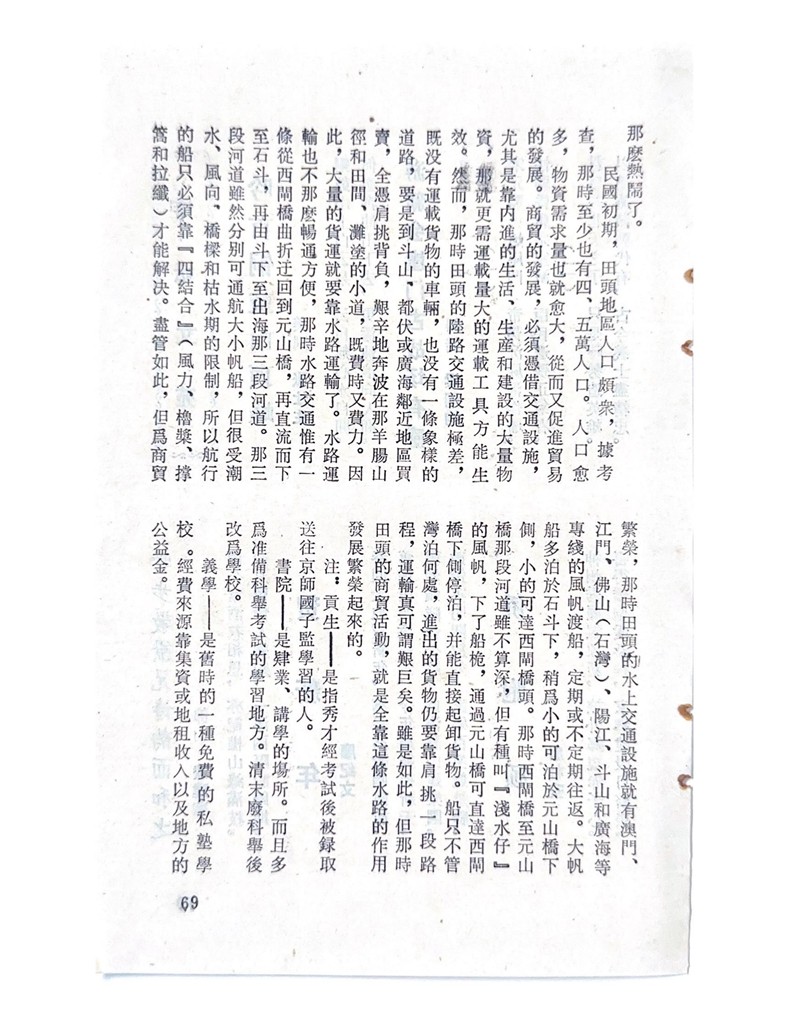 那麽熱鬧了。
民國初期，田頭地區人口頗衆，據考
查，那時至少也有四、五萬人口。人口愈
多，物資需求量也就愈大，從而又促進貿易
的發展。商貿的發展，必須憑借交通設施，
尤其是靠内進的生活、生産和建設的大量物
資，那就更需運載量大的運載工具方能生
效。然而，那時田頭的陸路交通設施極差，
既没有運載貨物的車輛，也没有一條象樣的
道路，要是到斗山、都伏或廣海鄰近地區買
賣，全憑肩挑背負，艱辛地奔波在那羊腸山
徑和田間、灘塗的小道，既費時又費力。因
此，大量的貨運就要靠水路運輸了。水路運
輸也不那麽暢通方便，那時水路交通惟有一
條從西閘橋曲折迂回到元山橋，再直流而下
至石斗，再由斗下至出海那三段河道。那三
段河道雖然分别可通航大小帆船，但很受潮
水、風向、橋樑和枯水期的限制，所以航行
的船只必須靠『四結合』（風力、櫓槳、撑
篙和拉纖）才能解决。盡管如此，但爲商貿
繁榮，那時田頭的水上交通設施就有澳門、
江門、佛山（石灣）、陽江、斗山和廣海等
專綫的風帆渡船，定期或不定期往返。大帆
船多泊於石斗下，稍爲小的可泊於元山橋下
側，小的可達西閘橋頭。那時西閘橋至元山
橋那段河道雖不算深，但有種叫『淺水仔』
的風帆，下了船桅，通過元山橋可直達西閘
橋下側停泊，并能直接起卸貨物。船只不管
灣泊何處，進出的貨物仍要靠肩挑一段路
程，運輸真可謂艱巨矣。雖是如此，但那時
田頭的商貿活動，就是全靠這條水路的作用
發展繁榮起來的。
注：貢生——是指秀才經考試後被録取
送往京師國子監學習的人。
書院——是肄業、講學的場所。而且多
爲准備科舉考試的學習地方。清末廢科舉後
改爲學校。
義學——是舊時的一種免費的私塾學
校。經費來源靠集資或地租收入以及地方的
公益金。
69